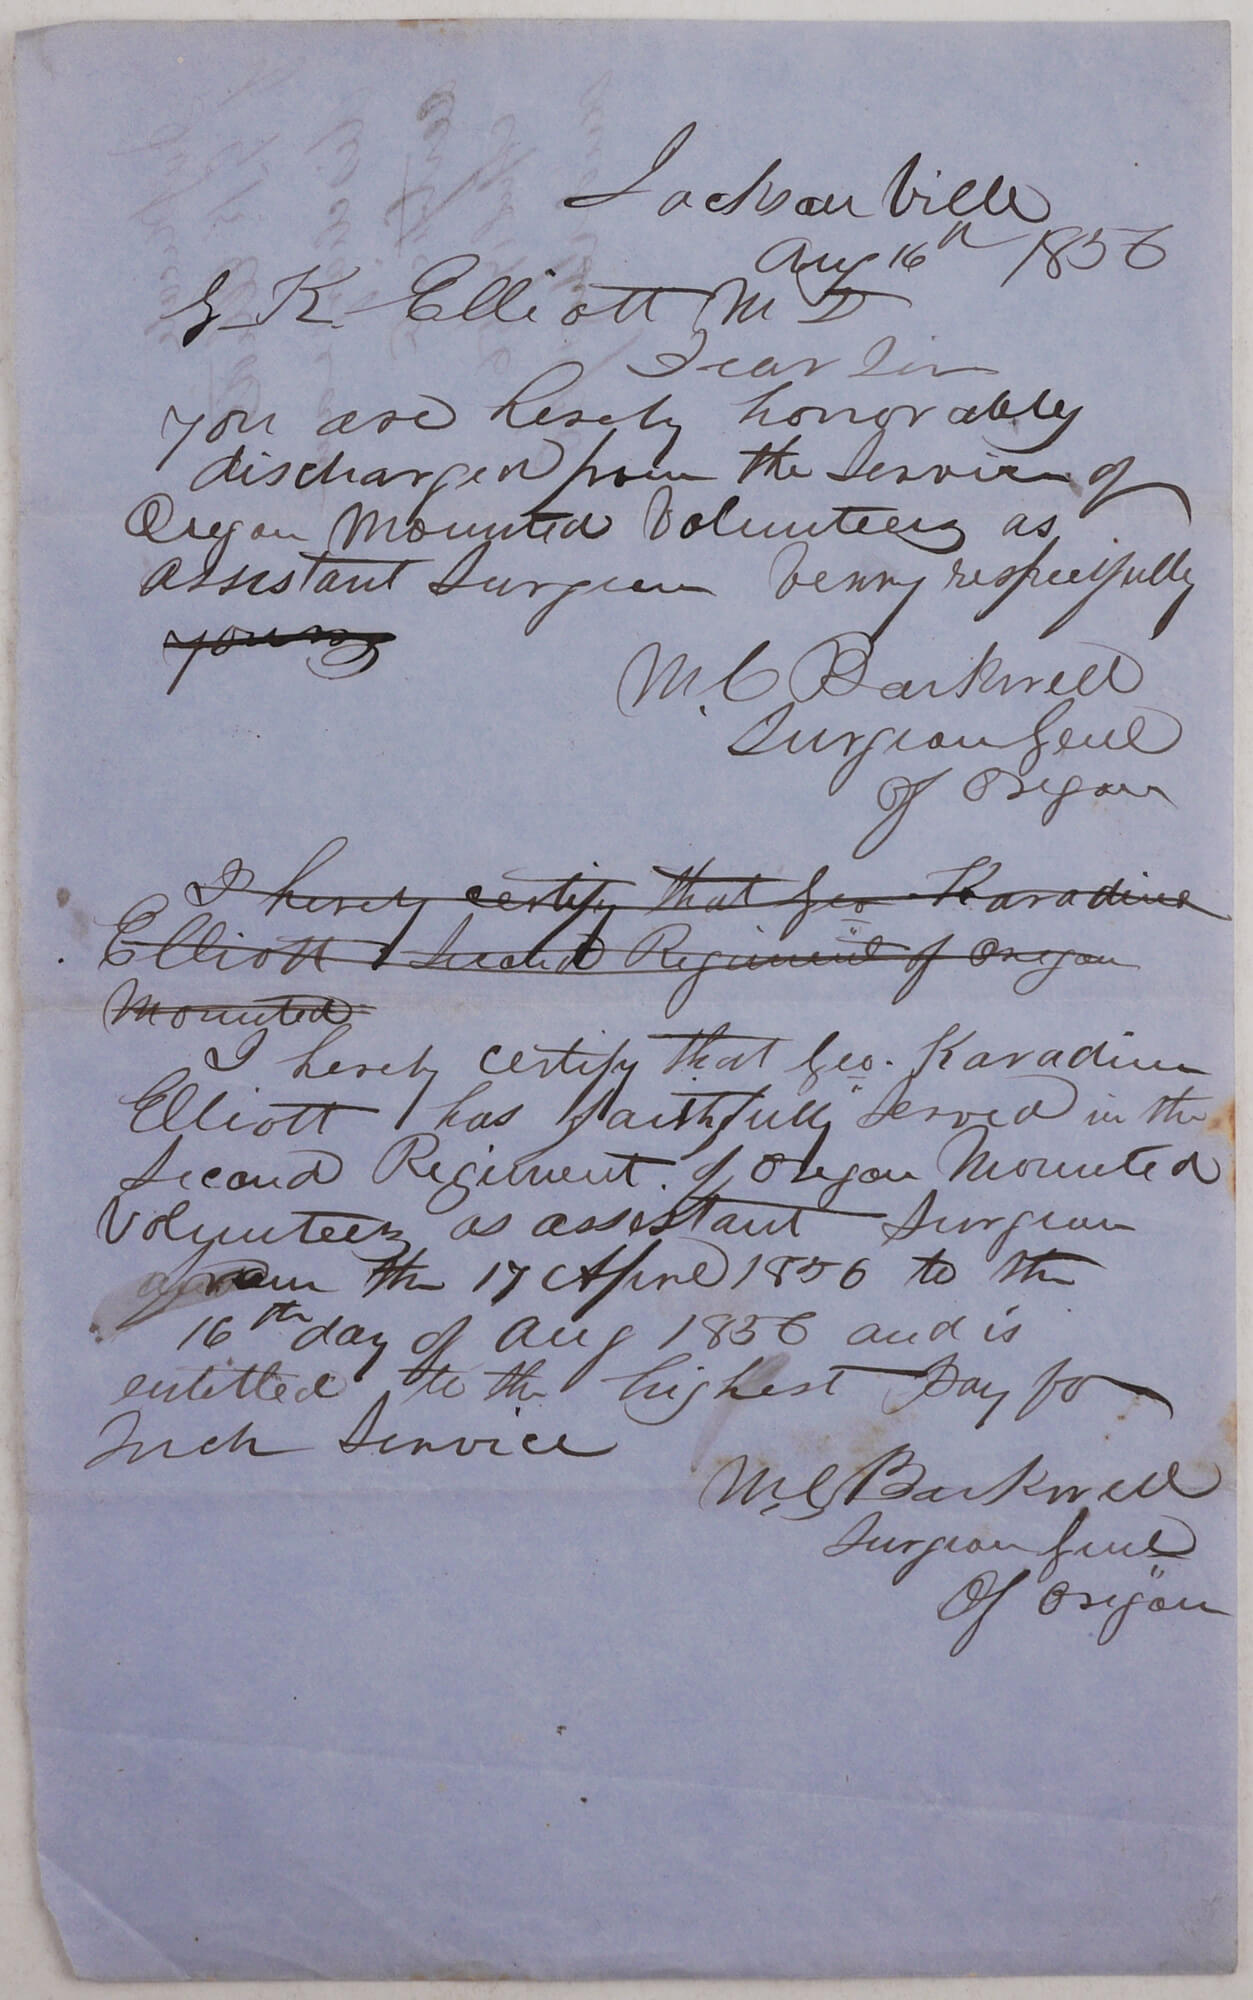 Jacksonville
Aug 16th 1856
G. K. Elliott M D
Dear Sir
you are hereby honorably
discharged from the Service of
Oregon Mounted Volunteers as
assistant Surgeon Verry respectfully
yours
M. C Barkwell
Surgeon Genl
Of Oregon
I hereby certify that Geo Karadine
Elliott Second Regiment of Oregon
Mounted
I hereby certify that Geo. Karadine
Elliott has faithfully served in the
Second Regiment of Oregon Mounted
Volunteers as assistant Surgeon
from the 17 April 1856 to the
16th day of Aug 1856 and is
entitled to the highest Pay for
Such Service
M. C Barkwell
Surgeon Genl
Of Oregon